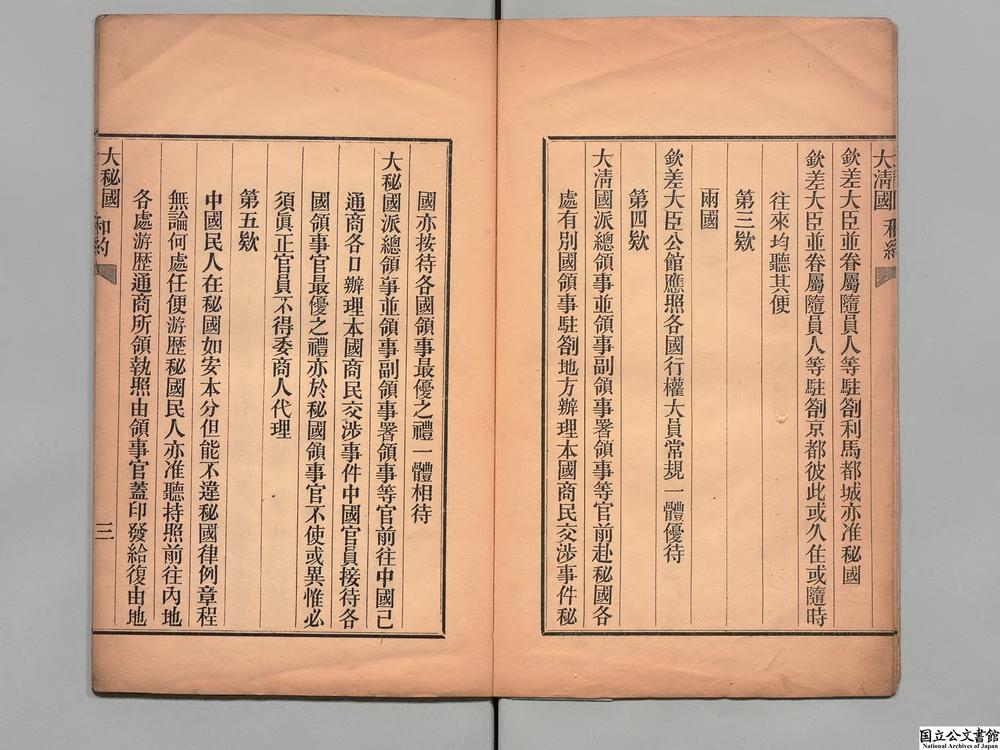 大清國 和約
欽差大臣並眷屬隨員人等駐劄利馬都城亦准秘國
欽差大臣並眷屬隨員人等駐劄京都彼此或久住或隨時
往來均聽其便
第三欵
兩國
欽差大臣公館應照各國行權大員常規一體優待
第四欵
大淸國派總領事並領事副領事署領事等官前赴秘國各
處有別國領事駐劄地方辦理本國商民交涉事件秘
國亦按待各國領事最優之禮一體相待
大秘國派總領事並領事副領事署領事等官前往中國已
通商各口辦理本國商民交涉事件中國官員接待各
國領事官最優之禮亦於秘國領事官不使或異惟必
須眞正官員不得委商人代理
第五欵
中國民人在秘國如安本分但能不違秘國律例章程
無論何處任便游歷秘國民人亦准聽持照前往內地
各處游歷通商所領執照由領事官蓋印發給復由地
大秘國 和約
三
国立公文書館
National Archives of Japan